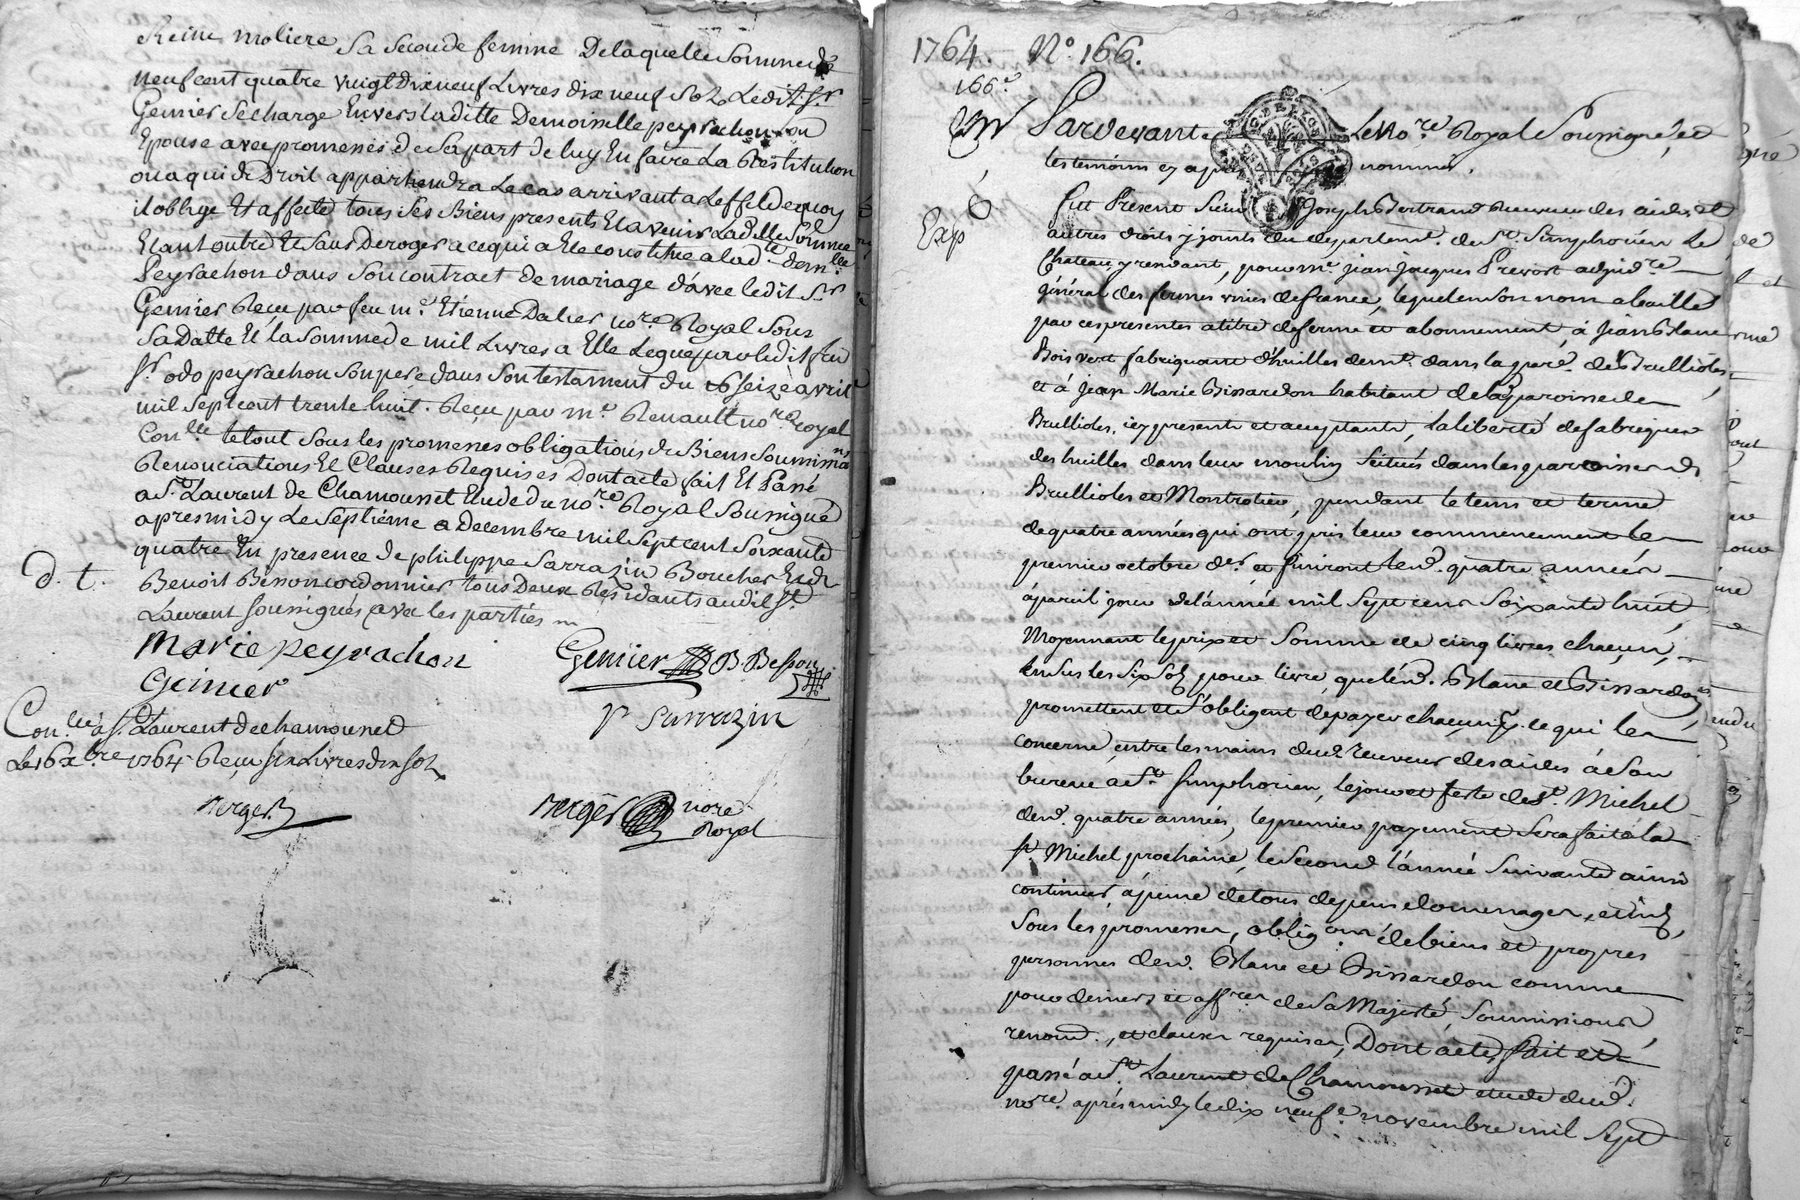 Reine moliere sa seconde femme De laquelle Somme de
neuf cent quatre vingt Dix neuf Livres dix neuf sols Ledit Sr
Genier se charge Envers laditte Demoiselle peyrachon son
Epouse avec promesses de sa part de luy En faire La Restitution
ou a qui de Droit appartiendra Le cas arrivant a Leffet de quoy
il oblige Et affecte tous ses Biens presents Et avenir Laditte Somme
Etant outre Et sans Deroger a ce qui a Ete constitué a lad.te dem.lle
Peyrachon dans son contract de mariage d'avec ledit Sr
Genier Reçu par feu me. Etienne Dalier nore. Royal sous
sa Datte Et la somme de mil Livres a Elle Leguée par ledit feu
Sr odo peyrachon son pere dans son testament du seize avril
mil sept cent trente huit. Reçu par me Renault nore Royal
Con.llé le tout sous les promesses obligations de Biens soumissns
Renonciations Et Clauses Requises Dont acte fait Et Passé
a St. Laurent de Chamousset Etude du nore. Royal soussigné
apres midy Le septiéme decembre mil sept cent soixante
quatre En presence de philippe Sarrazin Boucher Et de
d. t. Benoit Besson cordonnier tous Deux Residants audit St.
Laurent soussignés avec les parties
Marie peyrachon
Genier B. Besson
Genier
P Sarrazin
Con.llé a St. Laurent de chamousset
Le 16 xbre 1764 Reçu six Livres dix sols
verger
verger nore
Royal
1764. No. 166.
166e
Pardevant Le Nore. Royal Soussigné, et
les temoins cy apres nommés.
Exp
fut Present Sieur Joseph Bertrand Receveur des aides et
autres droits y joints du departemt. de St. Simphorien Le
Chateau y residant, pour me jean jacques Prevost adjudre
général des fermes unies de france, lequel en son nom a baillé
par ces presentes a titre de ferme et abonnement, à Jean Blanc
Bois vert fabriquant d'huilles demt. dans la parse. de Brullioles,
et à jean Marie Bissardon habitant de la paroisse de
Brullioles, icy presents et acceptants, la liberté de fabriquer
des huilles dans leur moulin situés dans les parroisses de
Brullioles et Montrotier, pendant le tems et terme
de quatre années qui ont pris leur commencement le
premier octobre der. et finiront lesd. quatre années
à pareil jour de l'année mil sept cens soixante huit,
Moyennant le prix et somme de cinq livres chacun,
en sus les six sols pour livre, que lesd. Blanc et Bissardon
promettent et s'obligent de payer chacun ce qui les
concerne, entre les mains dud. receveur des aides à son
bureau a St. Simphorien, le jour et feste de St. Michel
desd. quatre années, le premier payement sera fait à la
St Michel prochaine, le second l'année suivante ainsi
continuer, à peine de tous depens domages, et intz,
sous les promesses, obligons de biens et propres
personnes desd. Blanc et Bissardon comme
pour deniers et affres de sa Majesté, soumissions,
renond., et clauses requises, Dont acte, fait et
passé a St. Laurent de Chamousset etude dud.
nore. après midy le dix neufe novembre mil sept